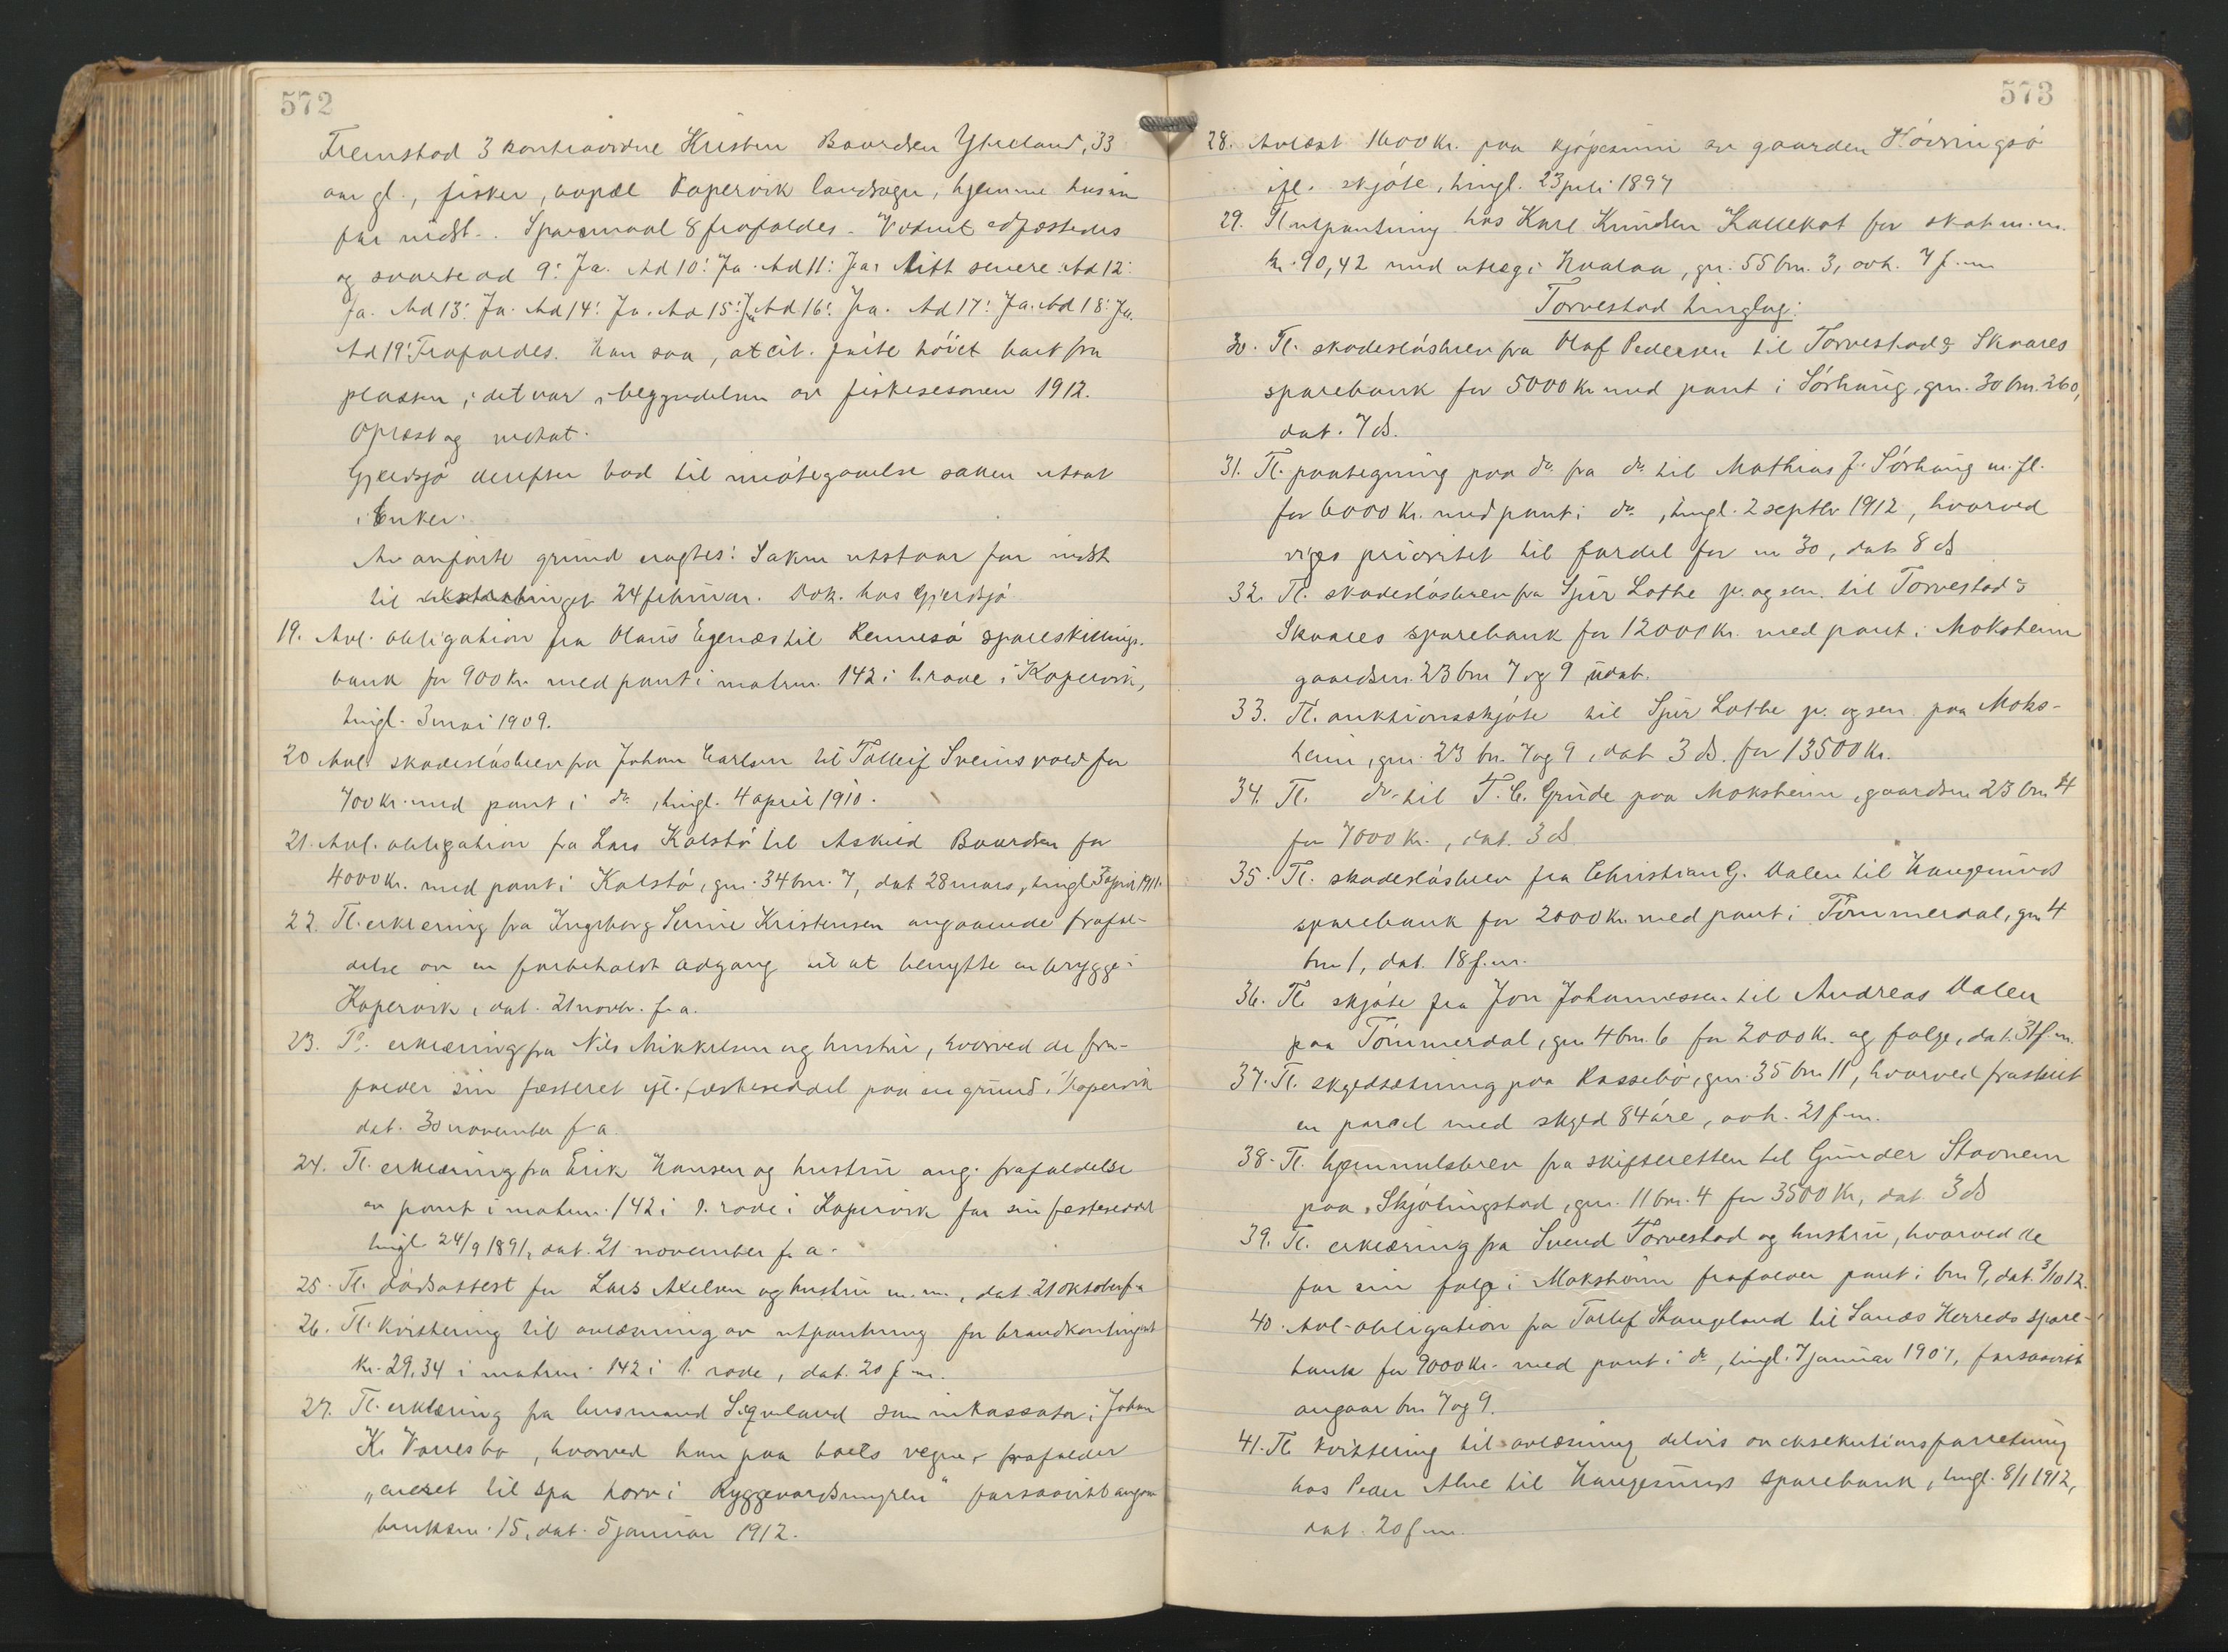 572
Fremstod 3 kontravidne Kristen Baardsen Ytreland, 33
aar gl., fisker, bopæl Kopervik landsogn, hjemme hos sin
far indst. Spørsmaal 8 frafaldes. Vidnet edfæstedes
og svarte ad 9: Ja. Ad 10: Ja. Ad 11: Ja, litt senere. Ad 12:
Ja. Ad 13: Ja. Ad 14: Ja. Ad 15: Ja. Ad 16: Ja. Ad 17: Ja. Ad 18: Ja.
Ad 19: Frafaldes. Han saa, at cit. førte høiet bort fra
plassen; det var i begyndelsen av fiskesesonen 1912.
Oplæst og vedtat.
Gjerdsjø derefter bad til imøtegaaelse saken utsat
i 6 uker.
Av anførte grund eragtes: Saken utstaar for indst
til ekstrating 24 februar. Dok. hos Gjerdsjø
19. Avl. obligation fra Olaus Egenæs til Rennesø spareskillings-
bank for 900 kr. med pant i matrnr. 142 i 1. rode i Kopervik,
tingl. 3 mai 1909.
20 Avl. skadesløsbrev fra Johan Carlsen til Tolleif Sveinsvold for
700 kr. med pant i do, tingl. 4 april 1910.
21. Avl. obligation fra Lars Kalstø til Askild Baardsen for
4000 kr. med pant i Kalstø, gnr. 34 bnr. 7, dat 28 mars, tingl 3 april 1911.
22. Tl. erklæring fra Ingeborg Serine Kristensen angaaende frafal-
delse av en forbeholdt adgang til at benytte en brygge i
Kopervik, dat. 21 novbr. f. a.
23. Tl. erklæring fra Nils Mikkelsen og hustru, hvorved de fra-
falder sin fæsteret ifl. fæsteseddel paa en grund i Kopervik
dat. 30 november f a.
24. Tl. erklæring fra Erik Hansen og hustru ang. frafaldelse
av pant i matrnr. 142 i 1. rode i Kopervik for sin festeseddel
tingl 24/9 1891, dat. 21 november f. a.
25. Tl. dødsattest for Lars Axelsen og hustru m.m., dat. 21 oktober f a
26. Tl. kvittering til avlæsning av utpantning for brandkontingent
kr. 29,34 i matrnr. 142 i 1. rode, dat. 20 f. m.
27. Tl. erklæring fra lensmand Sigveland som inkassator i Johan
K. bo, hvorved han paa boets vegne frafalder
„arret til spa torv i Ryggevardsmyren" forsaavidt angaar
bruksnr. 15, dat. 5 januar 1912.
573
28. Avlæst 1600 kr. paa kjøpesum av gaarden Høvringsø
ifl. skjøte, tingl. 23 juli 1897
29. Tl utpantning hos Karl Knudsen Kallekot for skat m.m.
kr. 90,42 med utlæg i Hvalaa, gnr. 55 bnr. 3, avh. 7 f. m
Torvestad tinglag:
30. Tl. skadesløsbrev fra Olaf Pedersen til Torvestad & Skaares
sparebank for 5000 kr med pant i Sørhaug, gnr. 30 bnr. 260,
dat. 7 ds.
31. Tl. paategning paa do fra do til Mathias J. Sørhaug m. fl.
for 6000 kr. med pant i do, tingl. 2 septbr 1912, hvorved
viges prioritet til fordel for nr 30, dat. 8 ds
32. Tl. skadesløsbrev fra Sjur Lothe jr. og sen. til Torvestad &
Skaares sparebank for 12000 kr. med pant i Moksheim
gaardsnr. 23 bnr 7 og 9 udat.
33. Tl. auktionsskjøte til Sjur Lothe jr. og sen paa Moks-
heim, gnr. 23 bnr. 7 og 9, dat 3 ds. for 13500 kr.
34. Tl. do til T. C. Grude paa Moksheim, gaardsnr 23 bnr 4
for 7000 kr., dat. 3 ds.
35. Tl. skadesløsbrev fra Christian G. Dalen til Haugesunds
sparebank for 2000 kr. med pant i Tømmerdal, gnr 4
bnr 1, dat. 18 f. m.
36. Tl skjøte fra Jon Johannessen til Andreas Dalen
paa Tømmerdal, gnr 4 bnr. 6 for 2000 kr. og følge, dat. 31 f. m.
37. Tl. skyldsetning paa Rossebø, gnr. 35 bnr 11, hvorved fraskilt
en parcel med skyld 84 øre, avh. 21 f. m.
38. Tl. hjemmelsbrev fra skifteretten til Gunder Stavnem
paa Skjølingstad, gnr. 11 bnr. 4 for 3500 kr, dat. 3 ds
39. Tl. erklæring fra Svend Torvestad og hustru, hvorved de
for sin følge i Moksheim frafalder pant i bnr 9, dat. 3/10 12.
40. Avl. obligation fra Tollef Stangeland til Sands Herreds spare-
bank for 9000 kr. med pant i do, tingl. 7 januar 1907, forsaavidt
angaar bnr 7 og 9.
41. Tl kvittering til avlæsning delvis av eksekutionsforretning
hos Peder Alne til Haugesunds sparebank, tingl. 8/1 1912,
dat. 20 f. m.